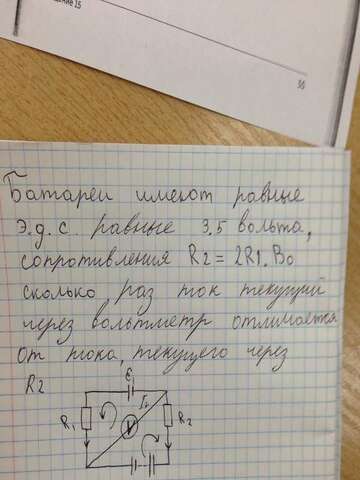 ение 15
30
Батареи имеют равные
э.д.с. равные 3,5 вольта,
сопротивления R2 = 2R1. Во
сколько раз ток текущий
через вольтметр отличается
от тока, текущего через
R2
ε
I
R1
V
R2